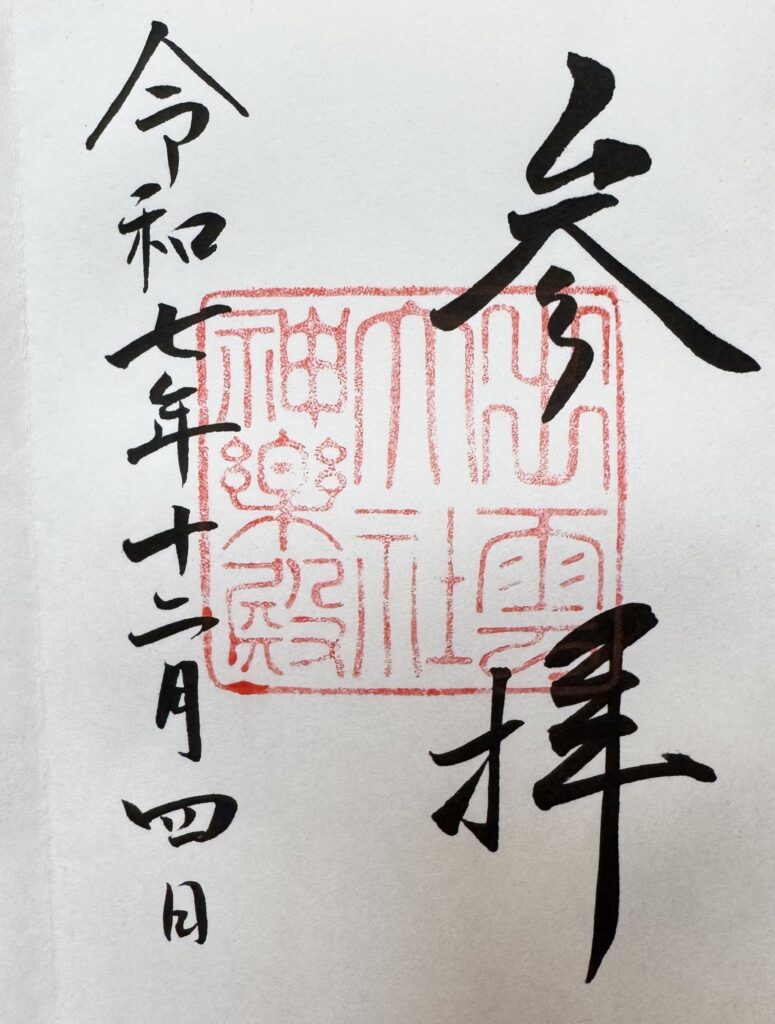 参拝
出雲
大社
神楽殿
令和七年十二月四日